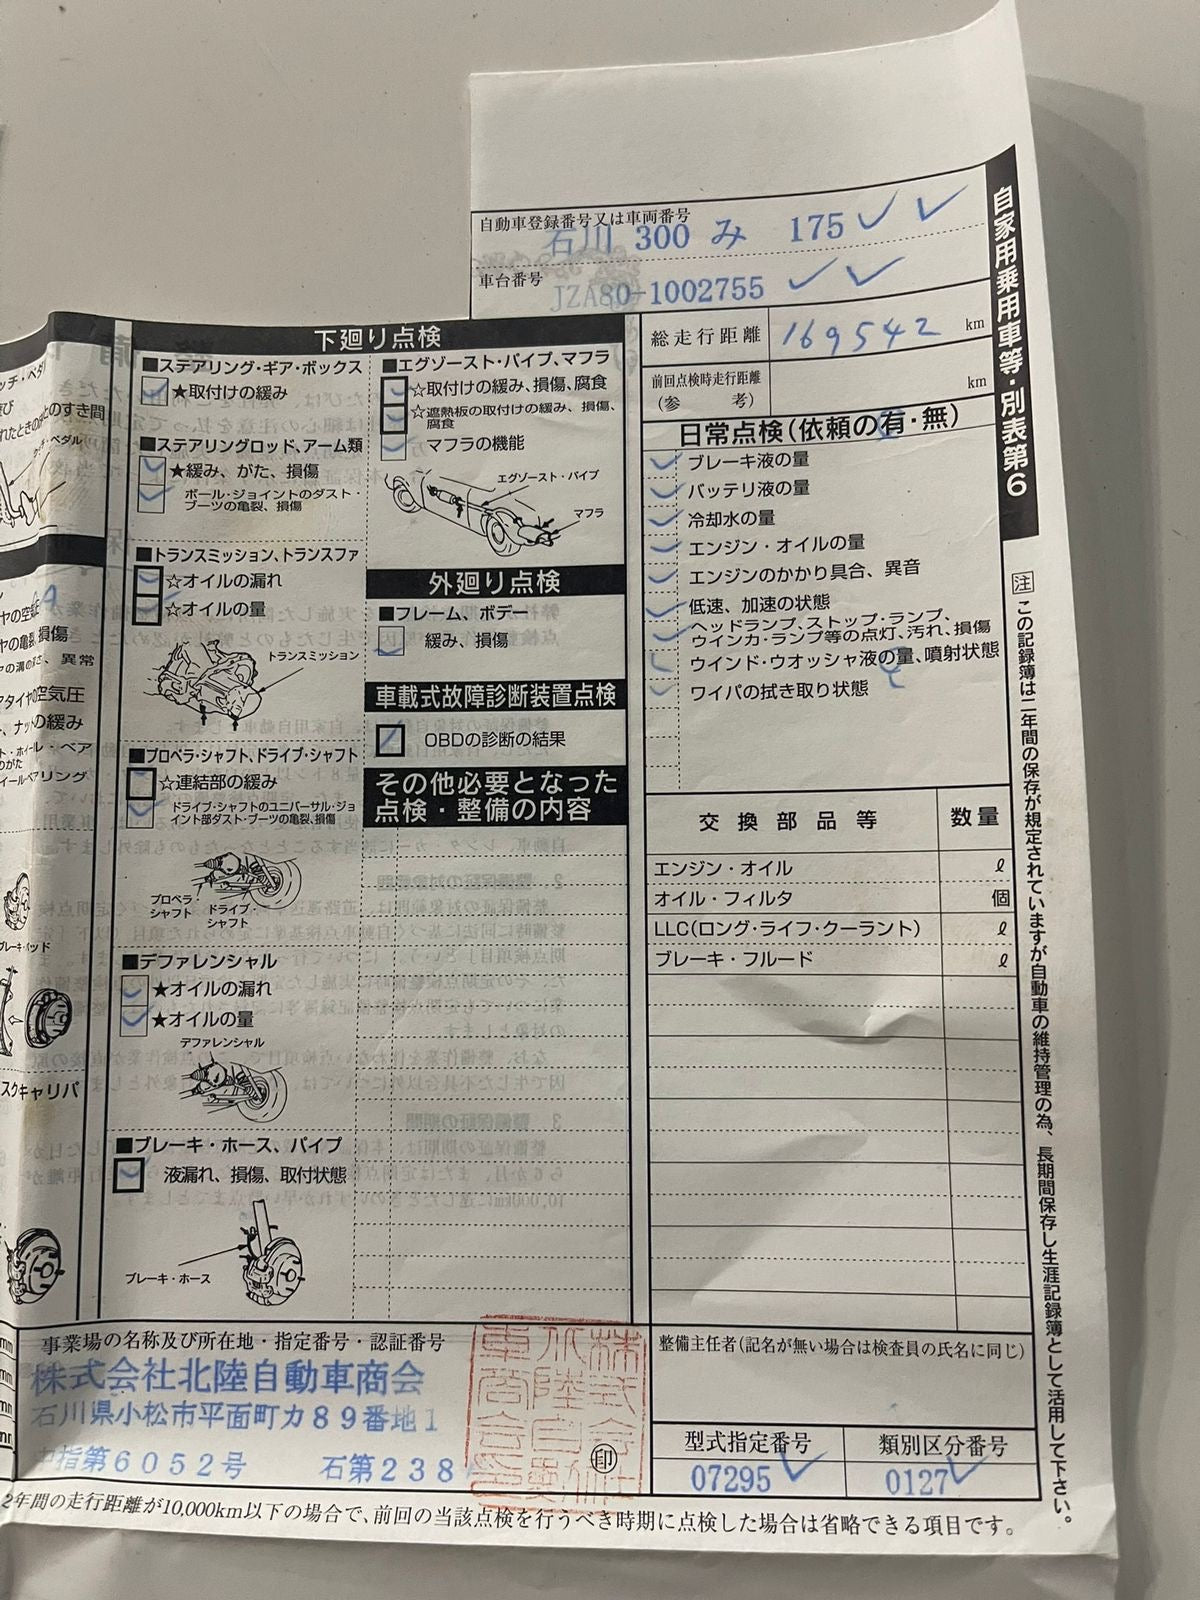 自家用乗用車等・別表第6
自動車登録番号又は車両番号
石川 300 み 175
車台番号
JZA80-1002755
総走行距離 169542 km
前回点検時走行距離
(参 考) km
日常点検(依頼の有・無)
ブレーキ液の量
バッテリ液の量
冷却水の量
エンジン・オイルの量
エンジンのかかり具合、異音
低速、加速の状態
ヘッドランプ、ストップ・ランプ、
ウインカ・ランプ等の点灯、汚れ、損傷
ウインド・ウオッシャ液の量、噴射状態
ワイパの拭き取り状態
交換部品等 数量
エンジン・オイル ℓ
オイル・フィルタ 個
LLC(ロング・ライフ・クーラント) ℓ
ブレーキ・フルード ℓ
下廻り点検
■ステアリング・ギア・ボックス
★取付けの緩み
■ステアリングロッド、アーム類
★緩み、がた、損傷
ボール・ジョイントのダスト・
ブーツの亀裂、損傷
■トランスミッション、トランスファ
☆オイルの漏れ
☆オイルの量
トランスミッション
■プロペラ・シャフト、ドライブ・シャフト
☆連結部の緩み
ドライブ・シャフトのユニバーサル・ジョ
イント部ダスト・ブーツの亀裂、損傷
プロペラ・
シャフト
ドライブ・
シャフト
■デファレンシャル
★オイルの漏れ
★オイルの量
デファレンシャル
■ブレーキ・ホース、パイプ
液漏れ、損傷、取付状態
ブレーキ・ホース
■エグゾースト・パイプ、マフラ
☆取付けの緩み、損傷、腐食
☆遮熱板の取付けの緩み、損傷、
腐食
マフラの機能
エグゾースト・パイプ
マフラ
外廻り点検
■フレーム、ボデー
緩み、損傷
車載式故障診断装置点検
OBDの診断の結果
その他必要となった
点検・整備の内容
のすき間
損傷
異常
タイヤの空気圧
ナットの緩み
スクキャリパ
事業場の名称及び所在地・指定番号・認証番号
株式会社北陸自動車商会
石川県小松市平面町カ89番地1
指第6052号 石第238
印
整備主任者(記名が無い場合は検査員の氏名に同じ)
型式指定番号 類別区分番号
07295 0127
2年間の走行距離が10,000km以下の場合で、前回の当該点検を行うべき時期に点検した場合は省略できる項目です。
注 この記録簿は二年間の保存が規定されていますが自動車の維持管理の為、長期間保存し生涯記録簿として活用して下さい。